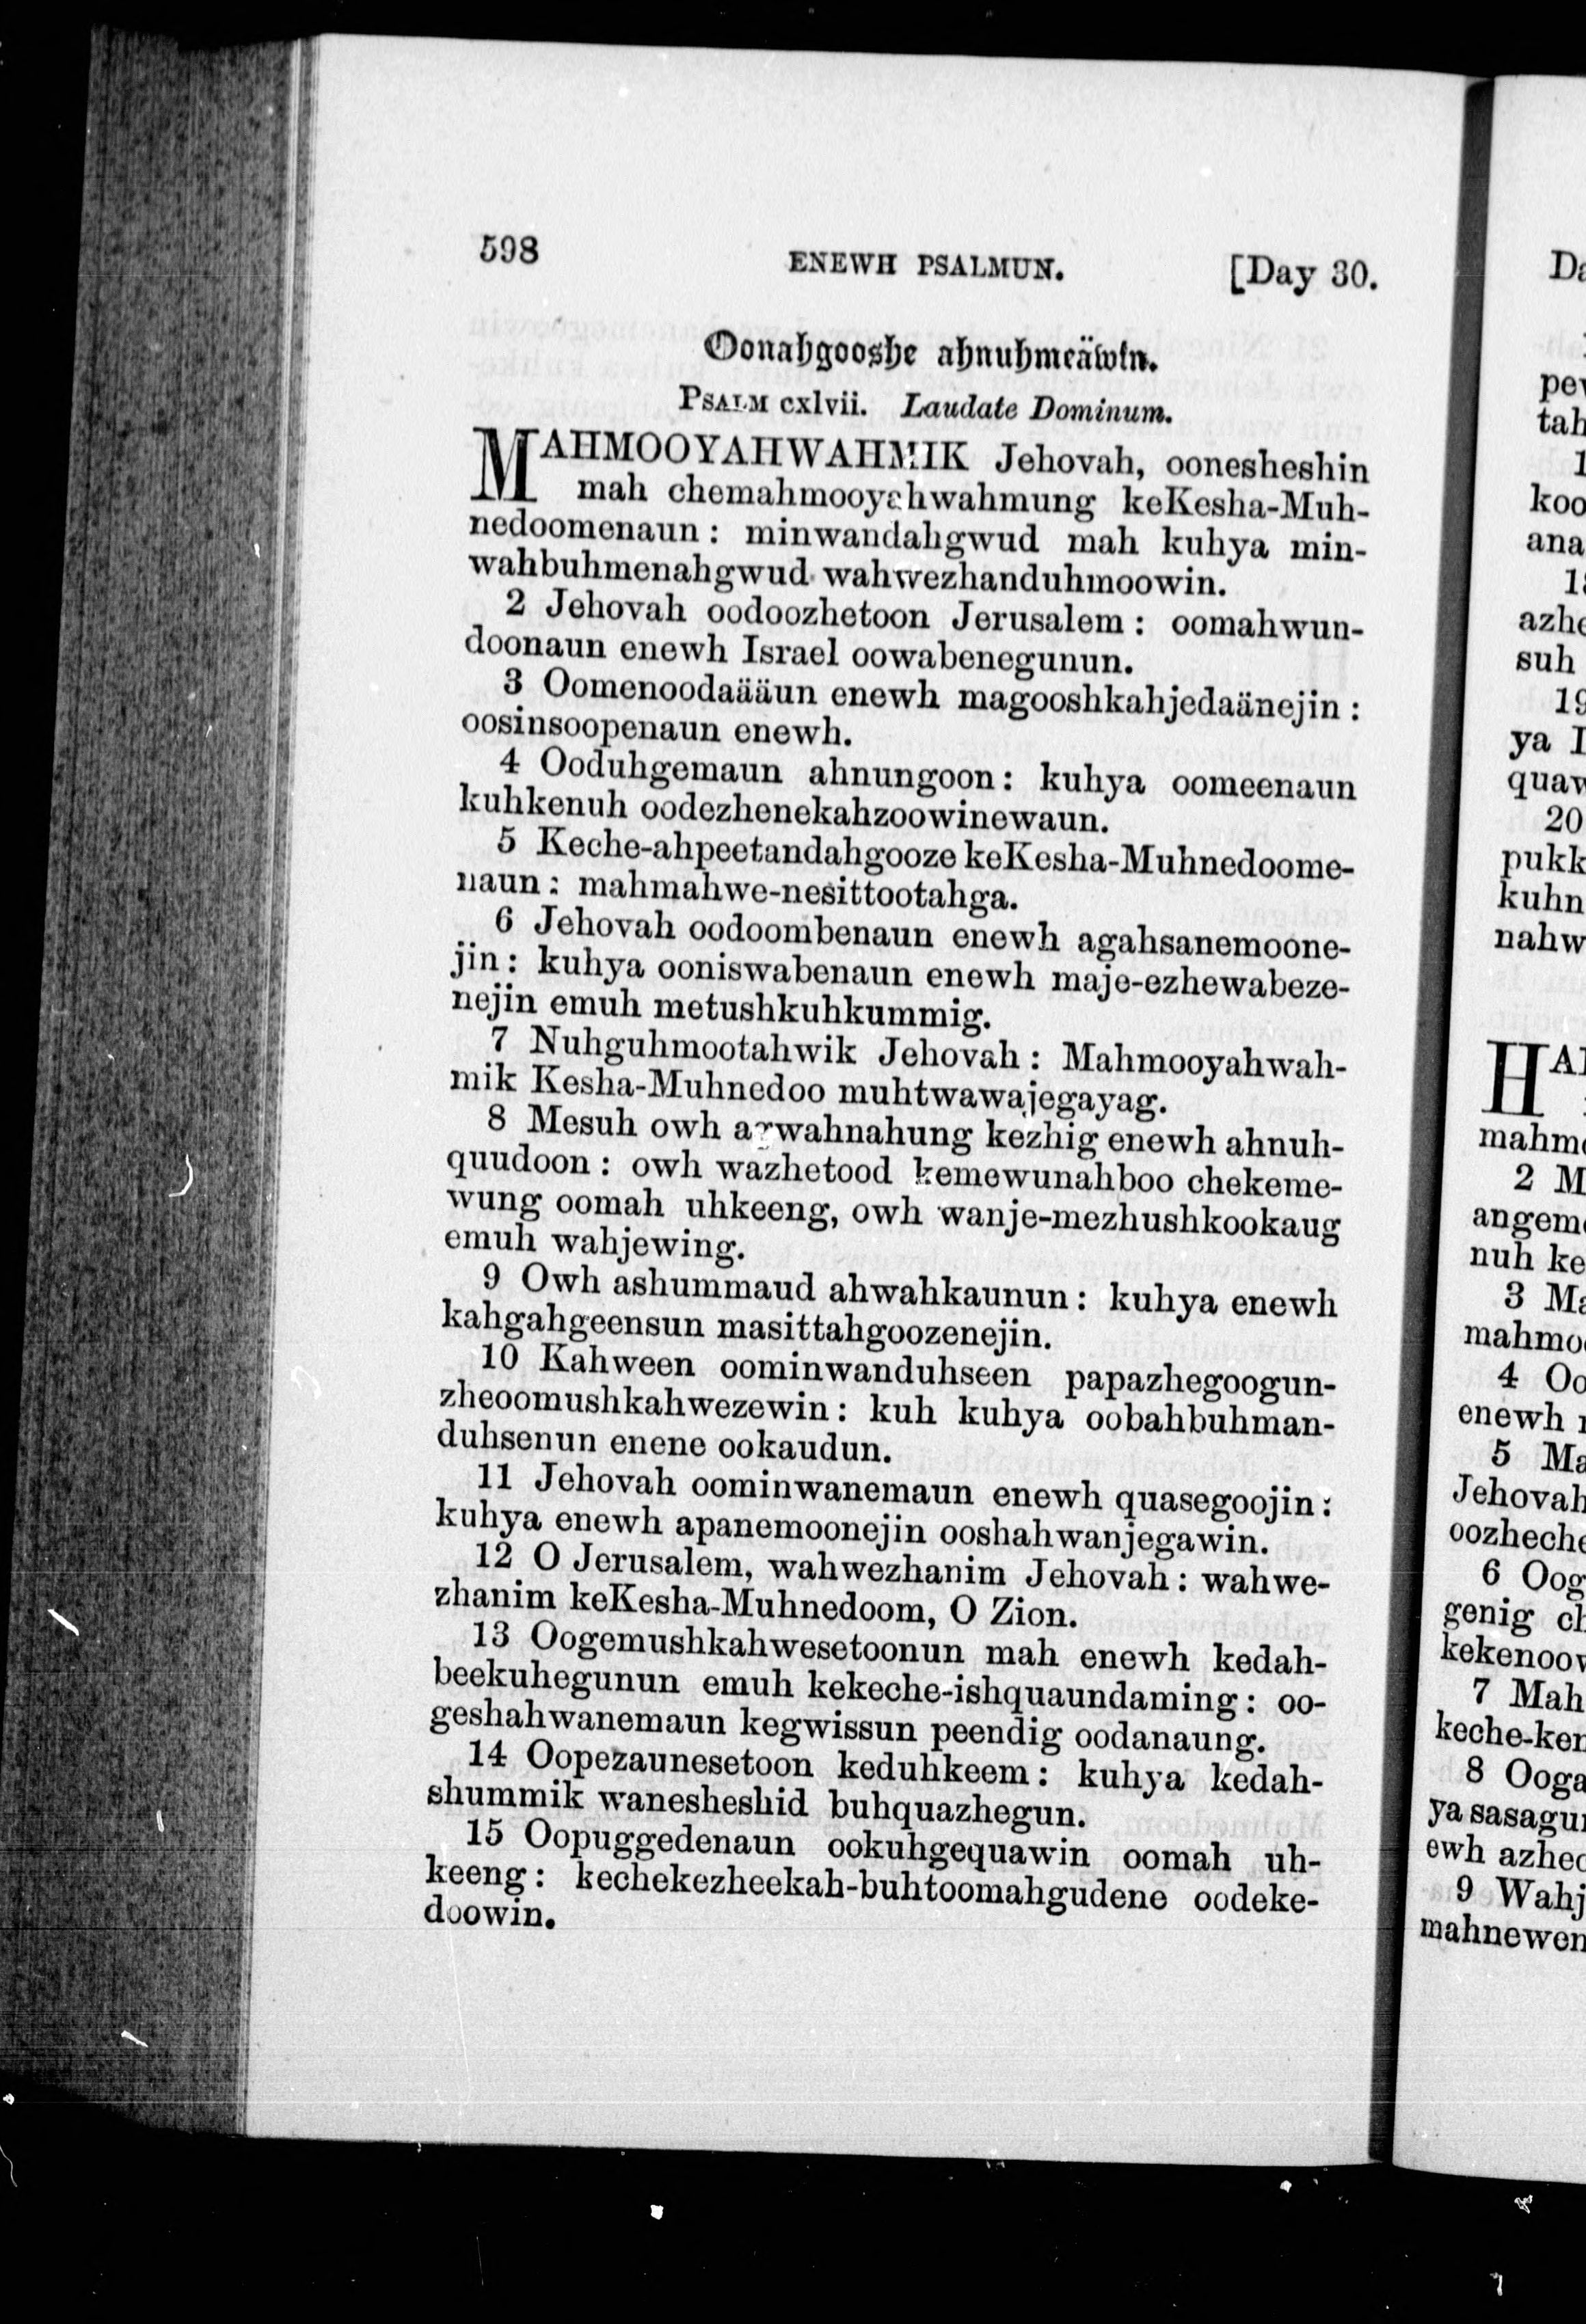 598 ENEWH PSALMUN. [Day 30.
Oonahgooshe ahnuhmeäwin.
PSALM cxlvii. Laudate Dominum.
MAHMOOYAHWAHMIK Jehovah, oonesheshin
mah chemahmooyahwahmung keKesha-Muh-
nedoomenaun : minwandahgwud mah kuhya min-
wahbuhmenahgwud wahwezhanduhmoowin.
2 Jehovah oodoozhetoon Jerusalem : oomahwun-
doonaun enewh Israel oowabenegunun.
3 Oomenoodaääun enewh magooshkahjedaänejin :
oosinsoopenaun enewh.
4 Ooduhgemaun ahnungoon : kuhya oomeenaun
kuhkenuh oodezhenekahzoowinewaun.
5 Keche-ahpeetandahgooze keKesha-Muhnedoome-
naun : mahmahwe-nesittootahga.
6 Jehovah oodoombenaun enewh agahsanemoone-
jin : kuhya ooniswabenaun enewh maje-ezhewabeze-
nejin emuh metushkuhkummig.
7 Nuhguhmootahwik Jehovah : Mahmooyahwah-
mik Kesha-Muhnedoo muhtwawajegayag.
8 Mesuh owh agwahnahung kezhig enewh ahnuh-
quudoon : owh wazhetood kemewunahboo chekeme-
wung oomah uhkeeng, owh wanje-mezhushkookaug
emuh wahjewing.
9 Owh ashummaud ahwahkaunun : kuhya enewh
kahgahgeensun masittahgoozenejin.
10 Kahween oominwanduhseen papazhegoogun-
zheoomushkahwezewin : kuh kuhya oobahbuhman-
duhsenun enene ookaudun.
11 Jehovah oominwanemaun enewh quasegoojin :
kuhya enewh apanemoonejin ooshahwanjegawin.
12 O Jerusalem, wahwezhanim Jehovah : wahwe-
zhanim keKesha-Muhnedoom, O Zion.
13 Oogemushkahwesetoonun mah enewh kedah-
beekuhegunun emuh kekeche-ishquaundaming : oo-
geshahwanemaun kegwissun peendig oodanaung.
14 Oopezaunesetoon keduhkeem : kuhya kedah-
shummik wanesheshid buhquazhegun.
15 Oopuggedenaun ookuhgequawin oomah uh-
keeng : kechekezheekah-buhtoomahgudene oodeke-
doowin.